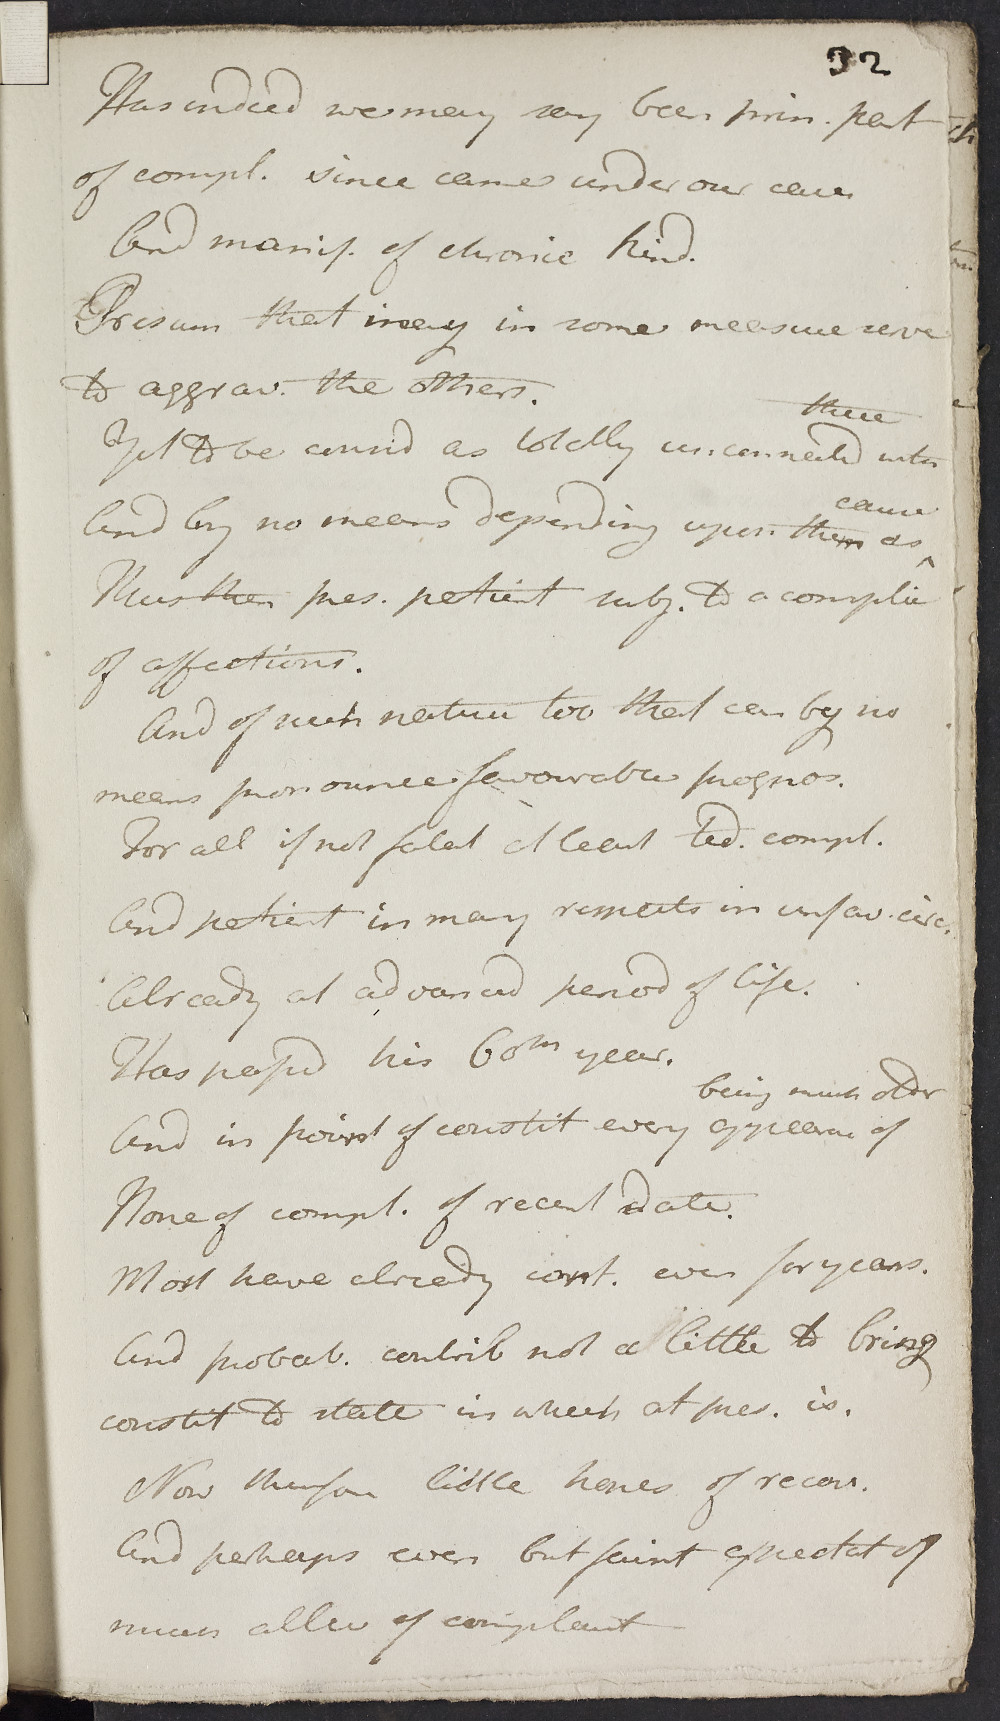 32
Has indeed we may say been prin. part
of compl. since came under our care
And manif. of chronic kind.
Presum that may in some measure serve
to aggrav. the others.
these
Yet to be consid as totally unconnected with
cause
And by no means depending upon them as
Thus then pres. patient subj. to a complic
of affections.
And of such nature too that can by no
means pronounce favourable prognos.
For all if not fatal at least ted. compl.
And patient in many respects in unfav. circ.
Already at advanced period of life.
Has passd his 60th year.
being much older
And in point of constit every appearance of
None of compl. of recent date.
Most have already const. even for years.
And probab. contrib not a little to bring
constit to state in which at pres. is.
Now therefore little hopes of recov.
And perhaps even but faint expectat of
much allev of complaint